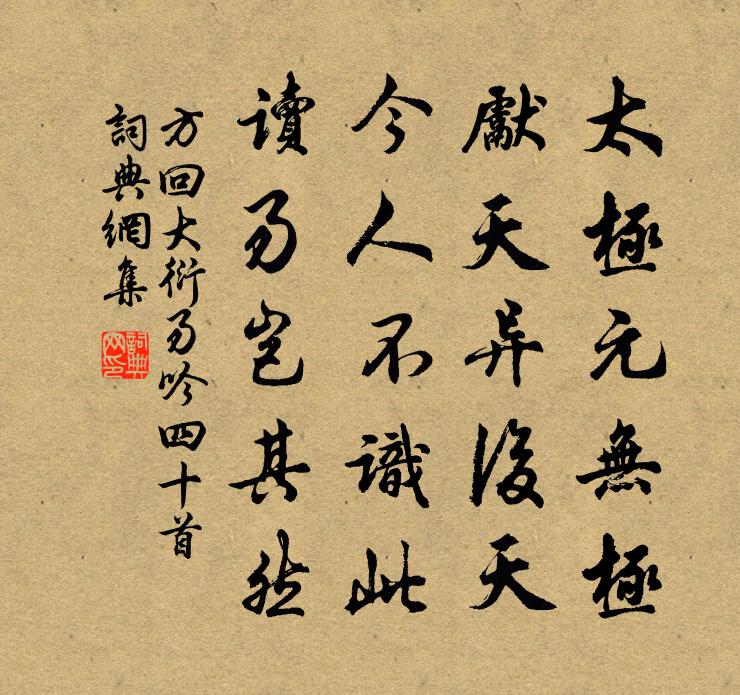 太極元無極
獻天异後天
今人不識此
讀易岂其然
方回大衍易吟四十首
詞典網集
詞典网印